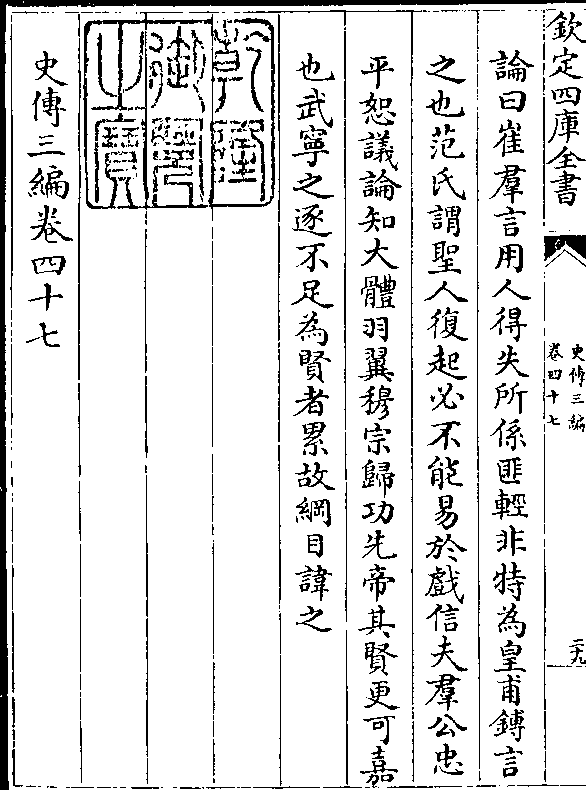 欽定四庫全書
史傳三編
卷四十七
二九
論曰崔羣言用人得失所係匪輕非特為皇甫鎛言
之也范氏謂聖人復起必不能易於戲信夫羣公忠
平恕議論知大體羽翼穆宗歸功先帝其賢更可嘉
也武寧之逐不足為賢者累故綱目諱之
乾隆
御覽
之寳
史傳三編卷四十七